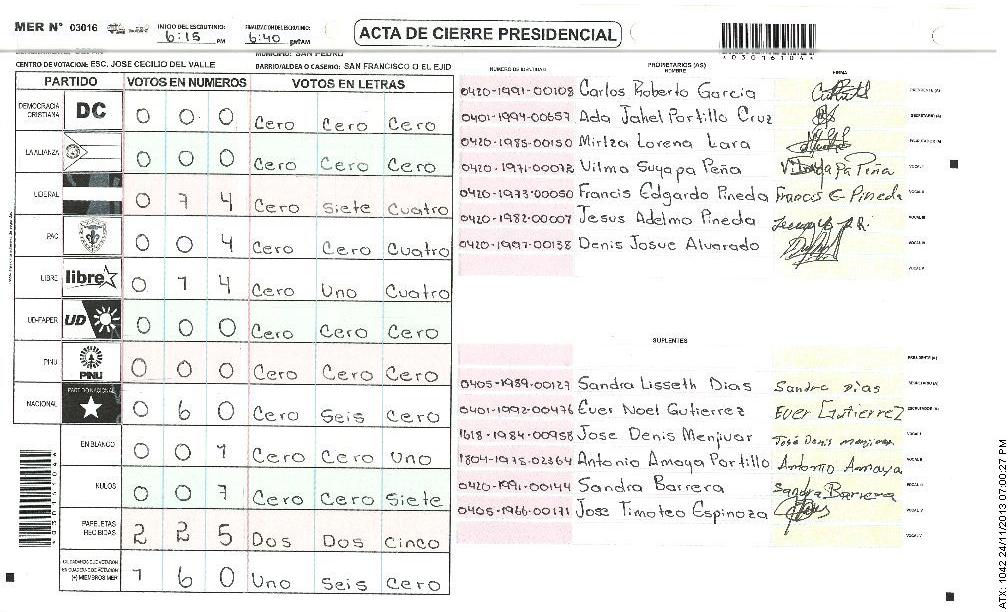 MER N° 03016 INICIO DEL ESCRUTINIO: 6:15 PM FINALIZACION DEL ESCRUTINIO: 6:40 PM
ACTA DE CIERRE PRESIDENCIAL
MUNICIPIO: SAN PEDRO
CENTRO DE VOTACION: ESC. JOSE CECILIO DEL VALLE BARRIO/ALDEA O CASERIO: SAN FRANCISCO O EL EJID
PARTIDO VOTOS EN NUMEROS VOTOS EN LETRAS
DEMOCRACIA CRISTIANA DC 0 0 0 Cero Cero Cero
LA ALIANZA 0 0 0 Cero Cero Cero
LIBERAL 0 7 4 Cero Siete Cuatro
PAC 0 0 4 Cero Cero Cuatro
LIBRE libre 0 1 4 Cero Uno Cuatro
UD-FAPER UD 0 0 0 Cero Cero Cero
PINU PINU 0 0 0 Cero Cero Cero
NACIONAL PARTIDO NACIONAL 0 6 0 Cero Seis Cero
EN BLANCO 0 0 1 Cero Cero Uno
NULOS 0 0 7 Cero Cero Siete
PAPELETAS RECIBIDAS 2 2 5 Dos Dos Cinco
CIUDADANOS QUE VOTARON EN CUADERNO DE VOTACION (+) MIEMBROS MER 1 6 0 Uno Seis Cero
PROPIETARIOS (AS)
NUMERO DE IDENTIDAD NOMBRE FIRMA
0420-1991-00108 Carlos Roberto Garcia PRESIDENTE (A)
0401-1994-00657 Ada Jahel Portillo Cruz SECRETARIO (A)
0420-1985-00150 Mirtza Lorena Lara ESCRUTADOR (A)
0420-1971-00072 Vilma Suyapa Peña VOCAL I
0420-1973-00050 Francis Edgardo Pineda Francis E Pineda VOCAL II
0420-1982-00007 Jesus Adelmo Pineda VOCAL III
0420-1997-00138 Denis Josue Alvarado VOCAL IV
VOCAL V
SUPLENTES
PRESIDENTE (A)
0405-1989-00127 Sandra Lisseth Dias Sandra Dias SECRETARIO (A)
0401-1992-00476 Ever Noel Gutierrez Ever Gutierrez ESCRUTADOR (A)
1618-1984-00958 Jose Denis Menjivar José Denis Menjivar VOCAL I
1804-1975-02364 Antonio Amaya Portillo Antonio Amaya VOCAL II
0420-1991-00144 Sandra Barrera Sandra Barrera VOCAL III
0405-1966-00171 Jose Timoteo Espinoza VOCAL IV
VOCAL V
ATX: 1042 24/11/2013 07:00:27 PM